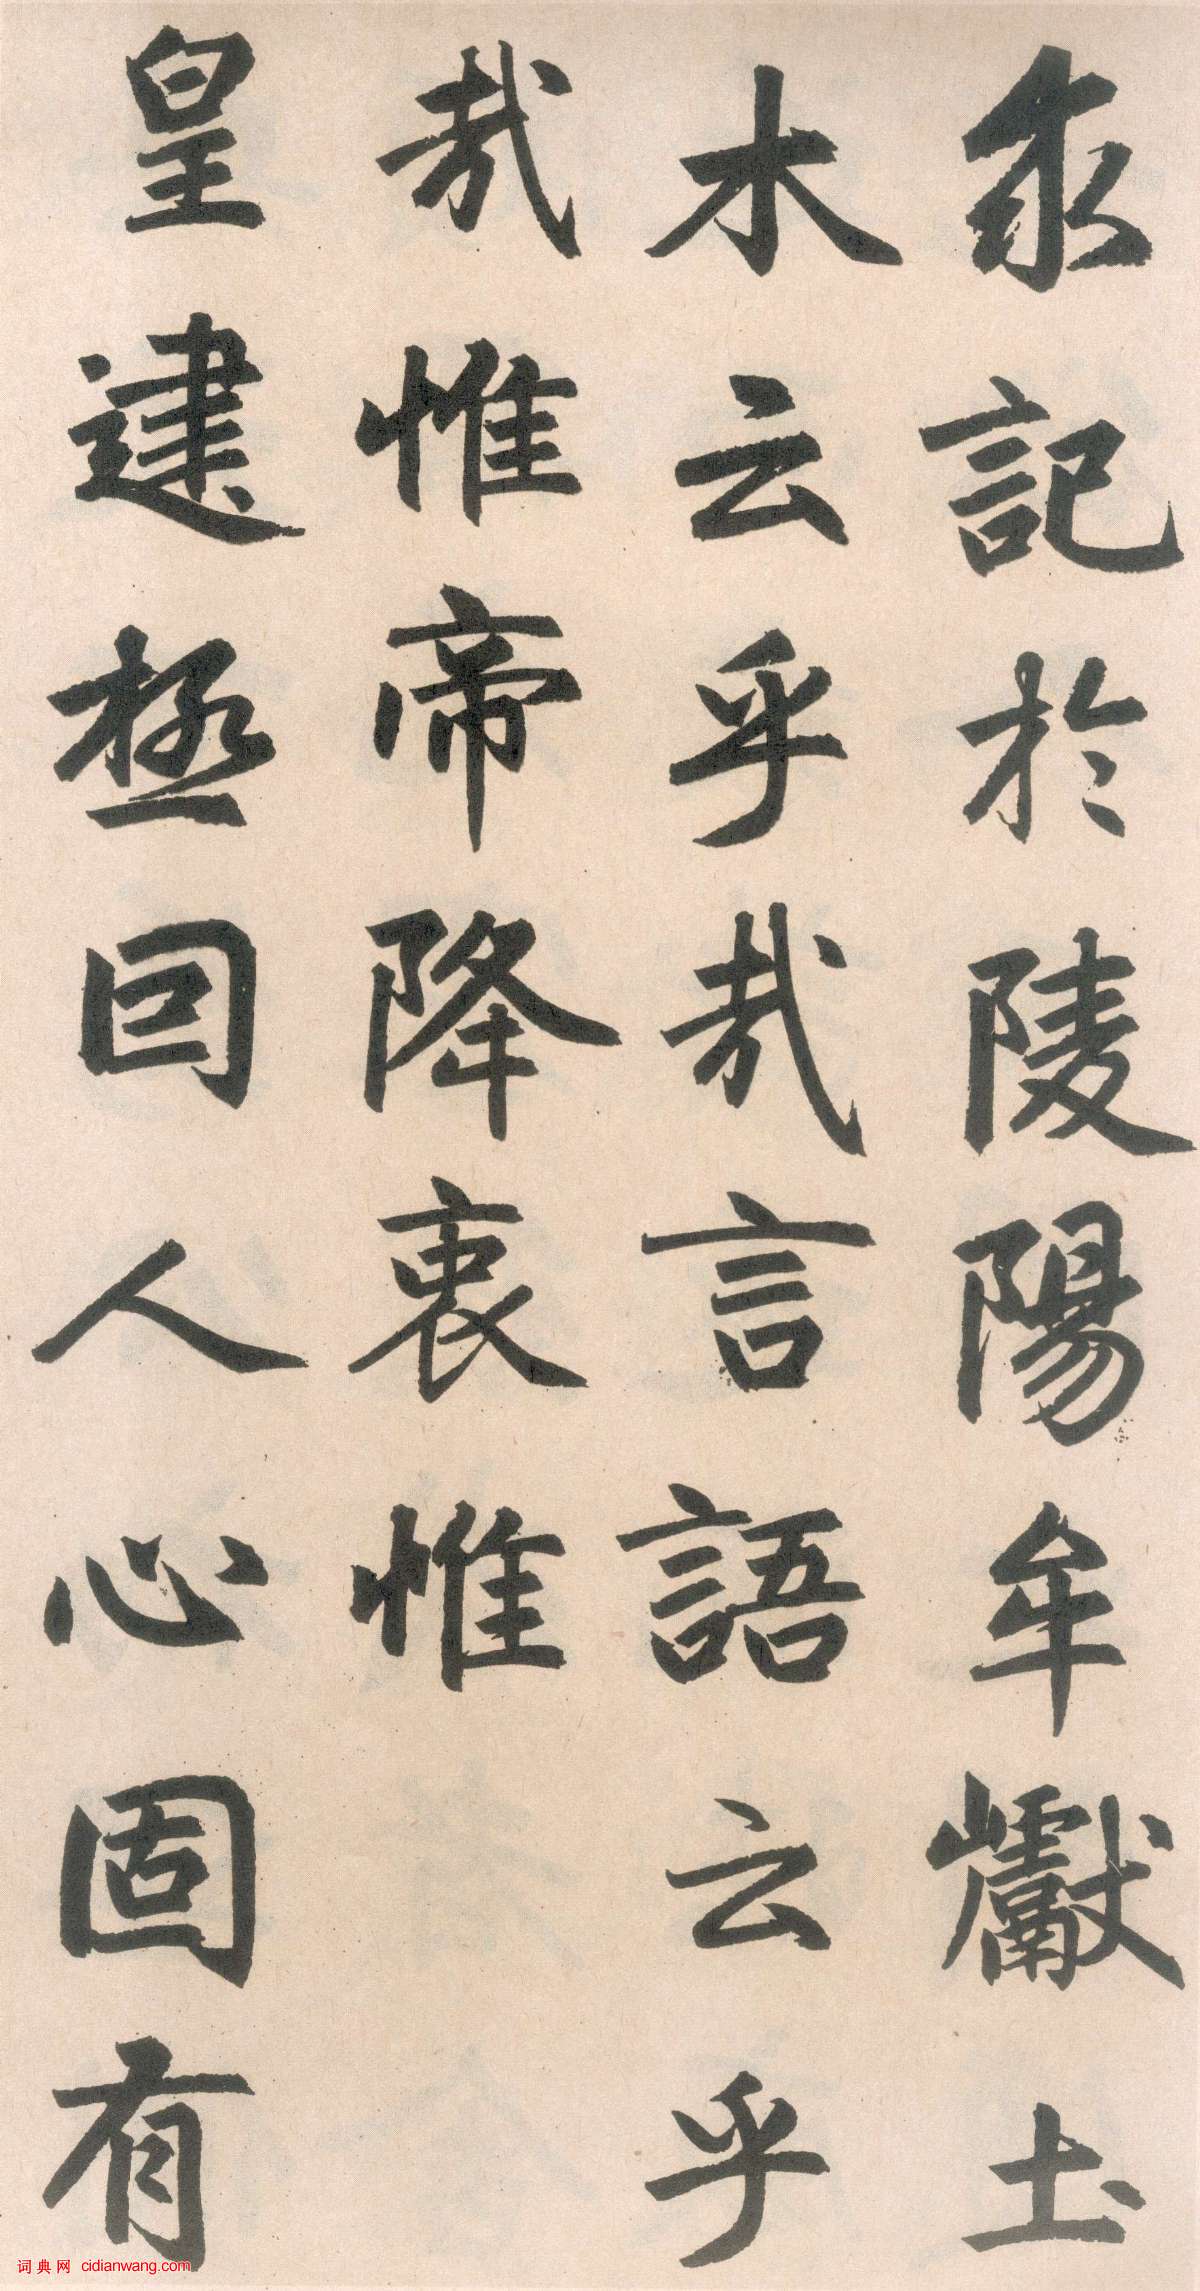 求記於陵陽牟巘土
木云乎哉言語云乎
哉惟帝降衷惟
皇建極囙人心固有
词典网 cidianwang.com